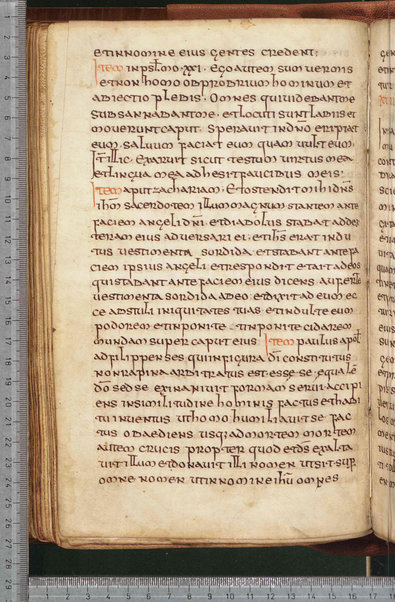 et in nomine eius gentes credent:
Item in psl̄mo·xxi· Ego autem sum uermis
et non homo obprobrium hominum et
abiectio plebis· Omnes qui uidebant me
subsannabant me· et locuti sunt labiis et
mouerunt caput· sperauit in dn̄o eripiat
eum· saluum faciat eum quam uult eum·
Et illic· Exaruit sicut testum uirtus mea
et lingua mea adhesit faucibus meis:
Item aput zachariam· Et ostendit mihi dn̄s
ihm̄ sacerdotem illum magnum stantem ante
faciem angeli dn̄i· et diabolus stabat ad dex
teram eius aduersari ei· et ihs̄ erat indu
tus uestimenta sordida et stabant ante fa
ciem ipsius angeli et respondit et ait ad eos
qui stabant ante faciem eius dicens auferte
uestimenta sordida ab eo· et dixit ad eum ec
ce abstuli iniquitates tuas et indulte eum
podorem et inponite tinponite cidarem
mundam super caput eius· Item paulus apo̅t
ad pilippenses qui in figura dī constitutus
non rapina arbitratus est esse se equalē
dō sed se exinaniuit formam serui accipi
ens in similitudine hominis factus et habi
tu inuentus ut homo humiliauit se fac
tus obaediens usq· ad mortem mortem
autem crucis propter quod et ds̄ exalta
uit illum et donauit illi nomen ut sit sup̄
omne nomen ut in nomine ihū omnes